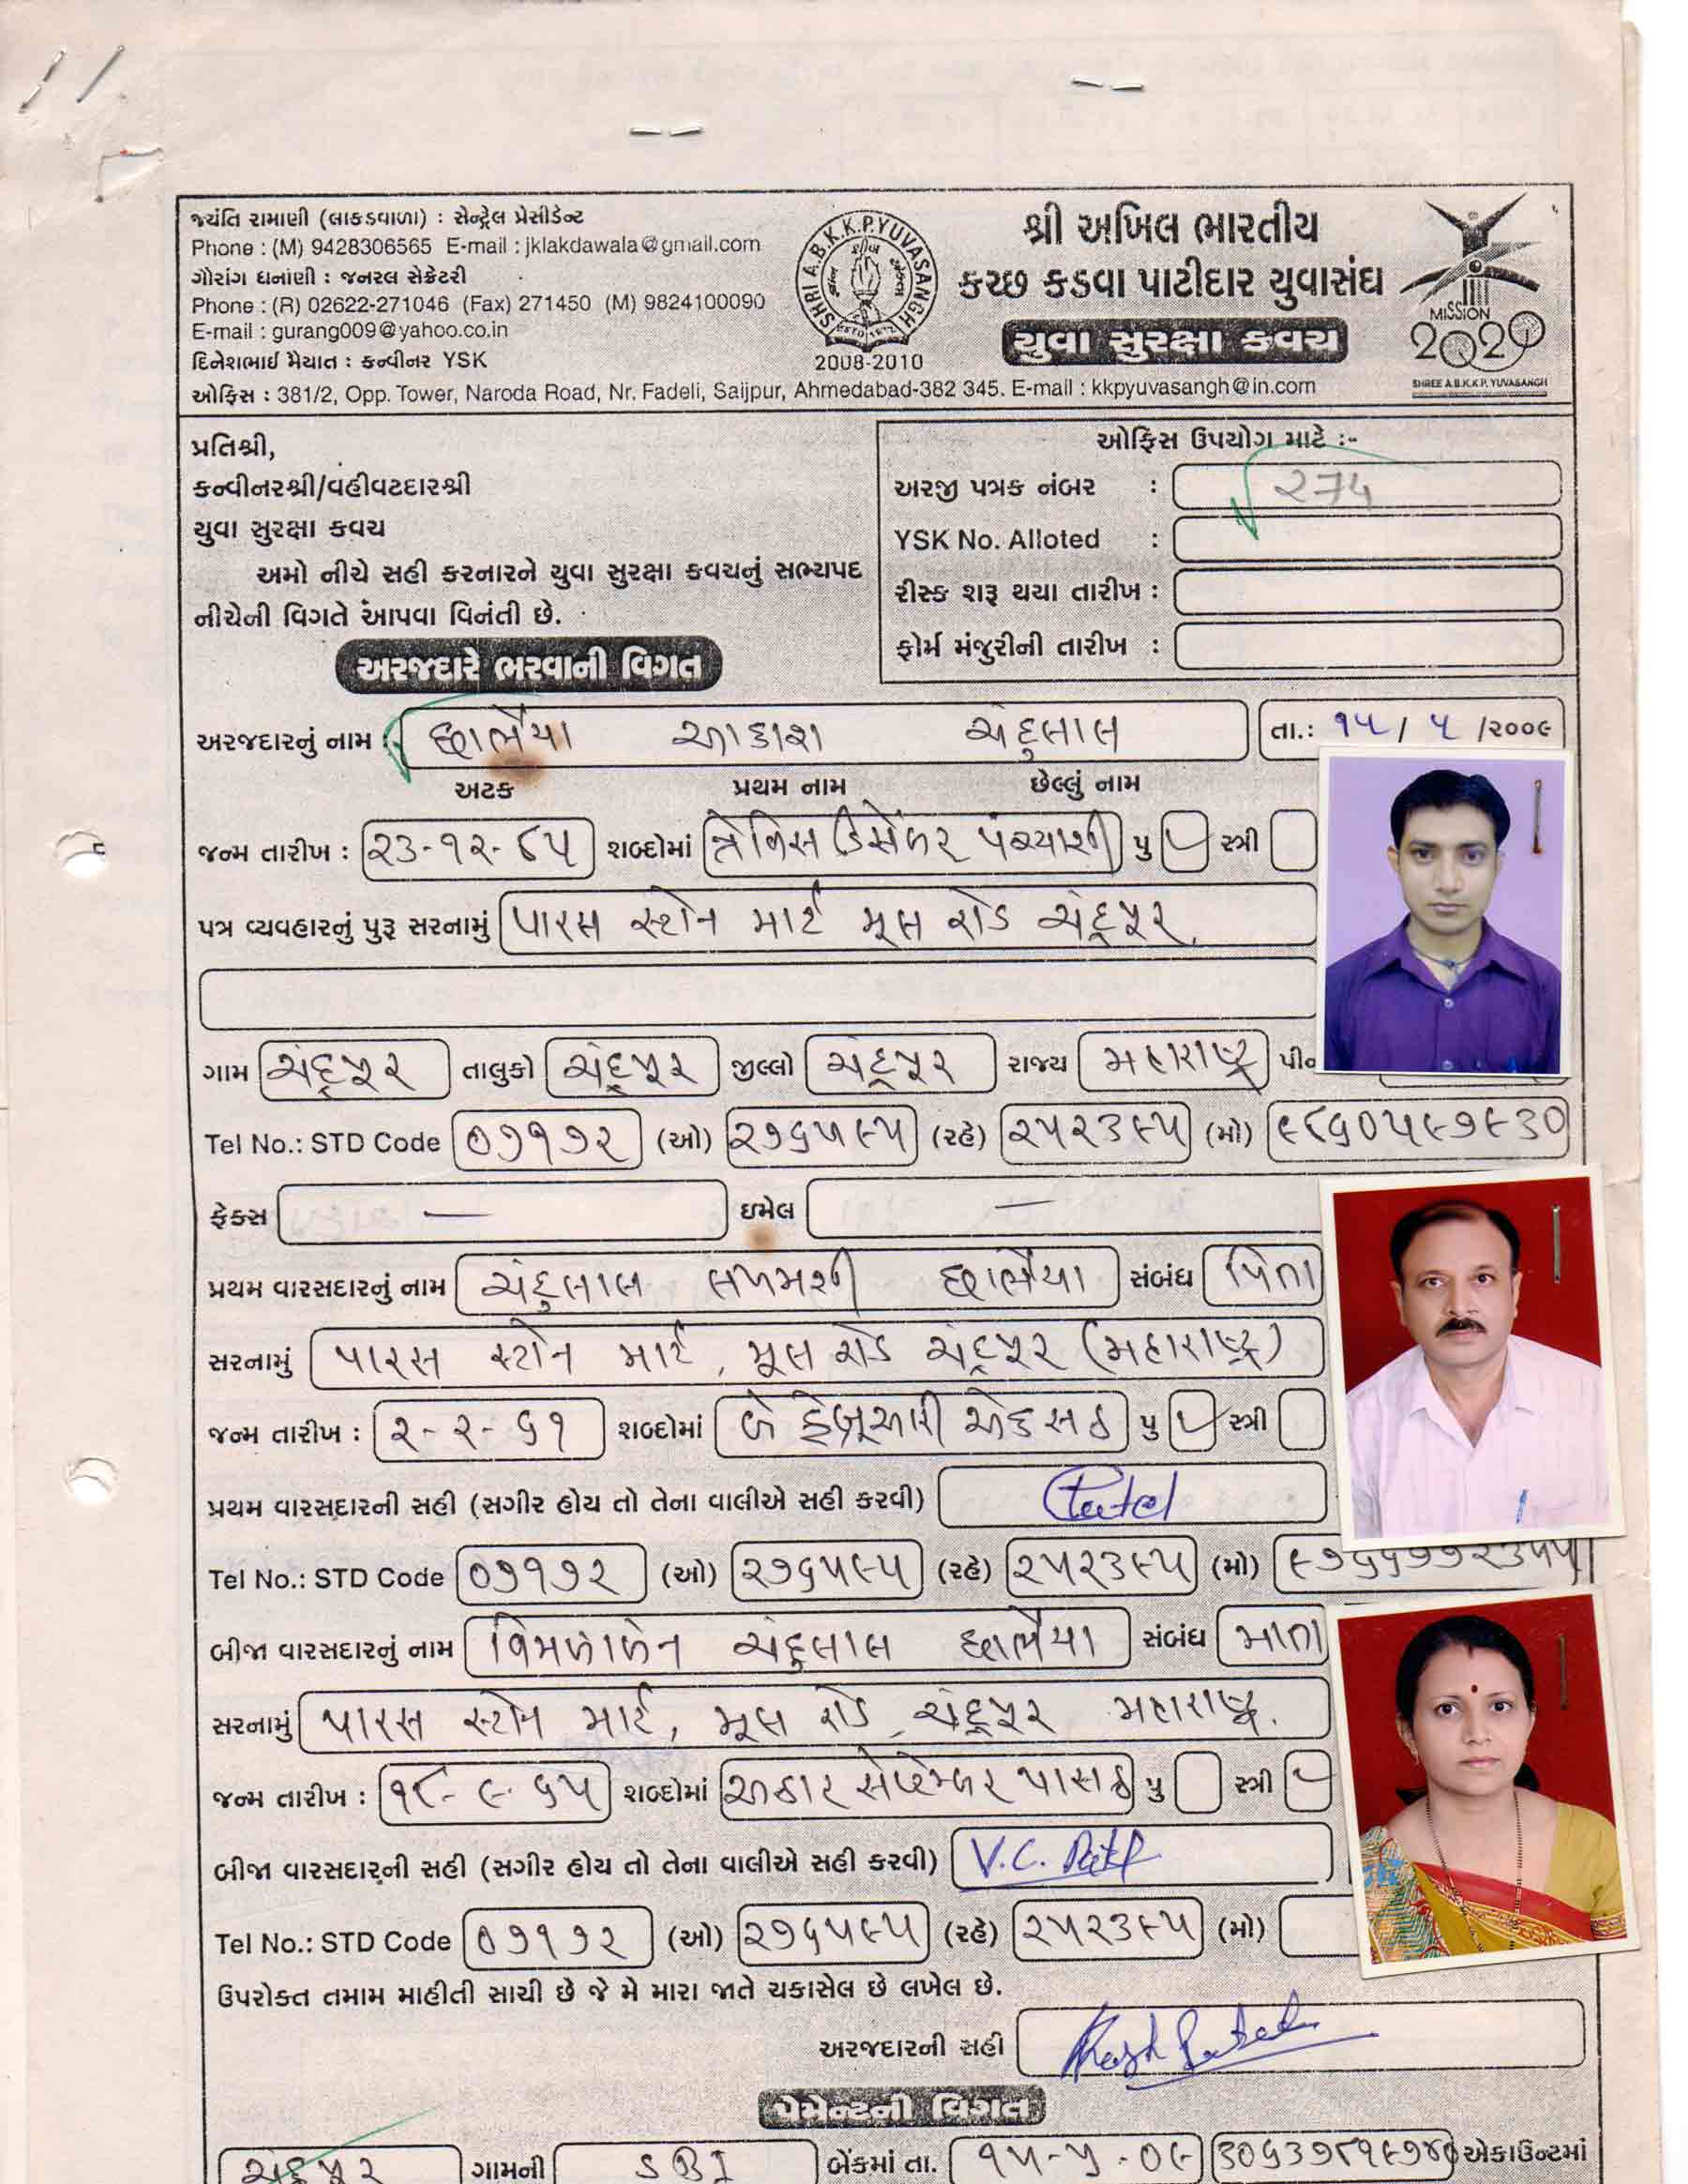 જયંતિ રામાણી (લાકડવાળા) : સેન્ટ્રેલ પ્રેસીડેન્ટ
Phone : (M) 9428306565 E-mail : jklakdawala@gmail.com
ગૌરાંગ ધનાણી : જનરલ સેક્રેટરી
Phone : (R) 02622-271046 (Fax) 271450 (M) 9824100090
E-mail : gurang009@yahoo.co.in
દિનેશભાઈ મૈયાત : કન્વીનર YSK
SHRI A.B.K.K.P.YUVASANGH
2008-2010
શ્રી અખિલ ભારતીય
કચ્છ કડવા પાટીદાર યુવાસંઘ
યુવા સુરક્ષા કવચ
MISSION
2020
SHREE A.B.K.K.P. YUVASANGH
ઓફિસ : 381/2, Opp. Tower, Naroda Road, Nr. Fadeli, Saijpur, Ahmedabad-382 345. E-mail : kkpyuvasangh@in.com
પ્રતિશ્રી,
કન્વીનરશ્રી/વહીવટદારશ્રી
યુવા સુરક્ષા કવચ
અમો નીચે સહી કરનારને યુવા સુરક્ષા કવચનું સભ્યપદ
નીચેની વિગતે આપવા વિનંતી છે.
ઓફિસ ઉપયોગ માટે :-
અરજી પત્રક નંબર : 
YSK No. Alloted :
રીસ્ક શરૂ થયા તારીખ :
ફોર્મ મંજુરીની તારીખ :
અરજદારે ભરવાની વિગત
અરજદારનું નામ : છાભૈયા આકાશ ચંદુલાલ તા.: ૧૫/ ૫ /૨૦૦૯
અટક પ્રથમ નામ છેલ્લું નામ
જન્મ તારીખ : ૨૩-૧૨-૮૫ શબ્દોમાં ત્રેવિસ ડિસેંબર પંચ્યાશી પુ સ્ત્રી
પત્ર વ્યવહારનું પુરૂ સરનામું પારસ સ્ટોન માર્ટ મૂલ રોડ ચંદ્રપુર.
ગામ ચંદ્રપુર તાલુકો ચંદ્રપુર જીલ્લો ચંદ્રપુર રાજ્ય મહારાષ્ટ્ર પીન
Tel No.: STD Code ૦૭૧૭૨ (ઓ) ૨૭૬૫૯૫ (રહે) ૨૫૨૩૯૫ (મો) ૯૮૬૦૫૯૭૯૩૦
ફેક્સ — ઇમેલ —
પ્રથમ વારસદારનું નામ ચંદુલાલ લખમશી છાભૈયા સંબંધ પિતા
સરનામું પારસ સ્ટોન માર્ટ, મૂલ રોડ ચંદ્રપુર (મહારાષ્ટ્ર)
જન્મ તારીખ : ૨-૨-૬૧ શબ્દોમાં બે ફેબ્રૂઆરી એકસઠ પુ સ્ત્રી
પ્રથમ વારસદારની સહી (સગીર હોય તો તેના વાલીએ સહી કરવી)
Tel No.: STD Code ૦૭૧૭૨ (ઓ) ૨૭૬૫૯૫ (રહે) ૨૫૨૩૯૫ (મો)
બીજા વારસદારનું નામ વિમળાબેન ચંદુલાલ છાભૈયા સંબંધ માતા
સરનામું પારસ સ્ટોન માર્ટ, મૂલ રોડ, ચંદ્રપુર મહારાષ્ટ્ર.
જન્મ તારીખ : ૧૮-૯-૬૫ શબ્દોમાં અઢાર સેપ્ટેમ્બર પાસઠ પુ સ્ત્રી
બીજા વારસદારની સહી (સગીર હોય તો તેના વાલીએ સહી કરવી) V.C. Patel
Tel No.: STD Code ૦૭૧૭૨ (ઓ) ૨૭૬૫૯૫ (રહે) ૨૫૨૩૯૫ (મો)
ઉપરોક્ત તમામ માહીતી સાચી છે જે મે મારા જાતે ચકાસેલ છે લખેલ છે.
અરજદારની સહી
પેમેન્ટની વિગત
ચંદ્રપુર ગામની SBI બેંકમાં તા. ૧૫-૫-૦૯ એકાઉન્ટમાં